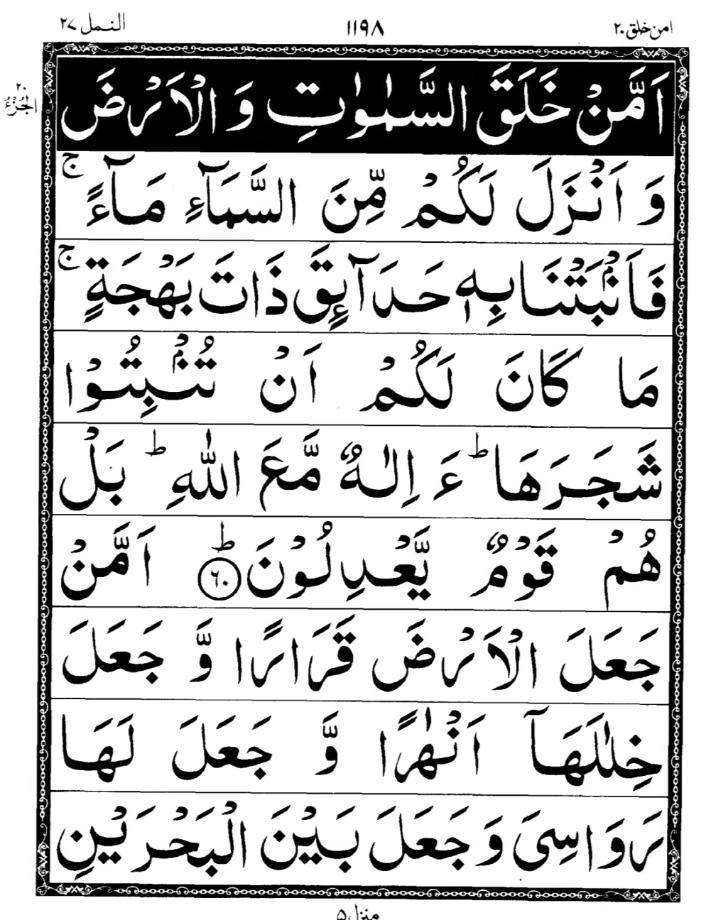 امن خلق ٢٠ ١١٩٨ النمل ٢٧
٢٠ الجزء
اَمَّنْ خَلَقَ السَّمٰوٰتِ وَ الْاَرْضَ
وَ اَنْزَلَ لَكُمْ مِّنَ السَّمَآءِ مَآءً ۚ
فَاَنْۢبَتْنَا بِهٖ حَدَآئِقَ ذَاتَ بَهْجَةٍ ۚ
مَا كَانَ لَكُمْ اَنْ تُنْۢبِتُوْا
شَجَرَهَا ؕ ءَ اِلٰهٌ مَّعَ اللّٰهِ ؕ بَلْ
هُمْ قَوْمٌ يَّعْدِلُوْنَ ؕ ﴿٦٠﴾ اَمَّنْ
جَعَلَ الْاَرْضَ قَرَارًا وَّ جَعَلَ
خِلٰلَهَاۤ اَنْهٰرًا وَّ جَعَلَ لَهَا
رَوَاسِيَ وَ جَعَلَ بَيْنَ الْبَحْرَيْنِ
منزل ٥